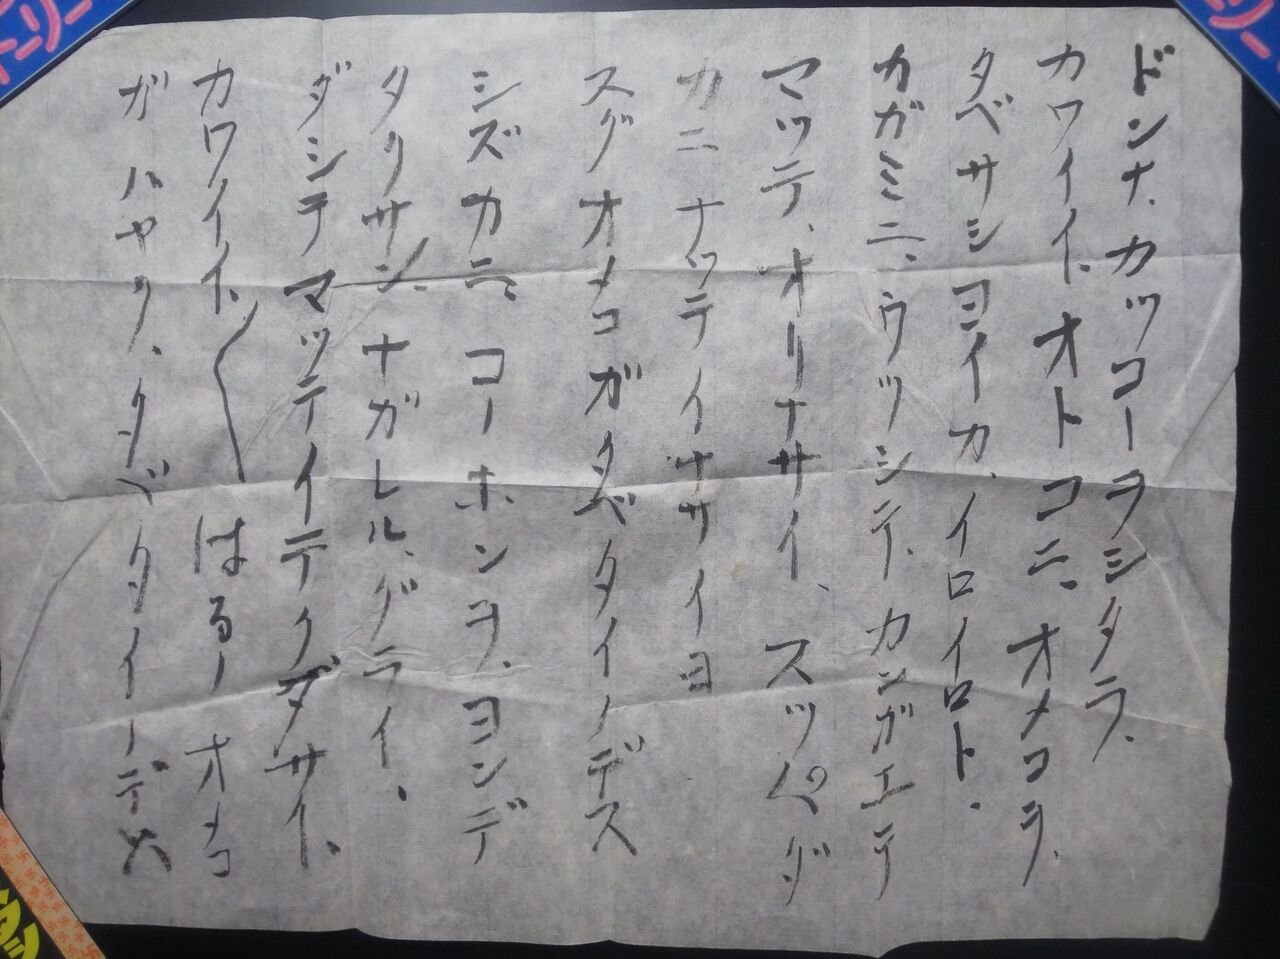 ドンナ、カッコーヲシタラ、
カワイイ、オトコニ、オメコヲ、
タベサシヨイカ、イロイロト、
カガミニ、ウツシテ、カンガエテ
マッテ、オリナサイ、スッペダ
カニナッテイナサイヨ
スグオメコガタベタイノデス
シズカニ、コーホンヲ、ヨンデ
タクサン、ナガレル、グライ、
ダシテマッテイテクダサイ、
カワイイ、〱はるーオメコ
ガハヤク、タベタイーデス